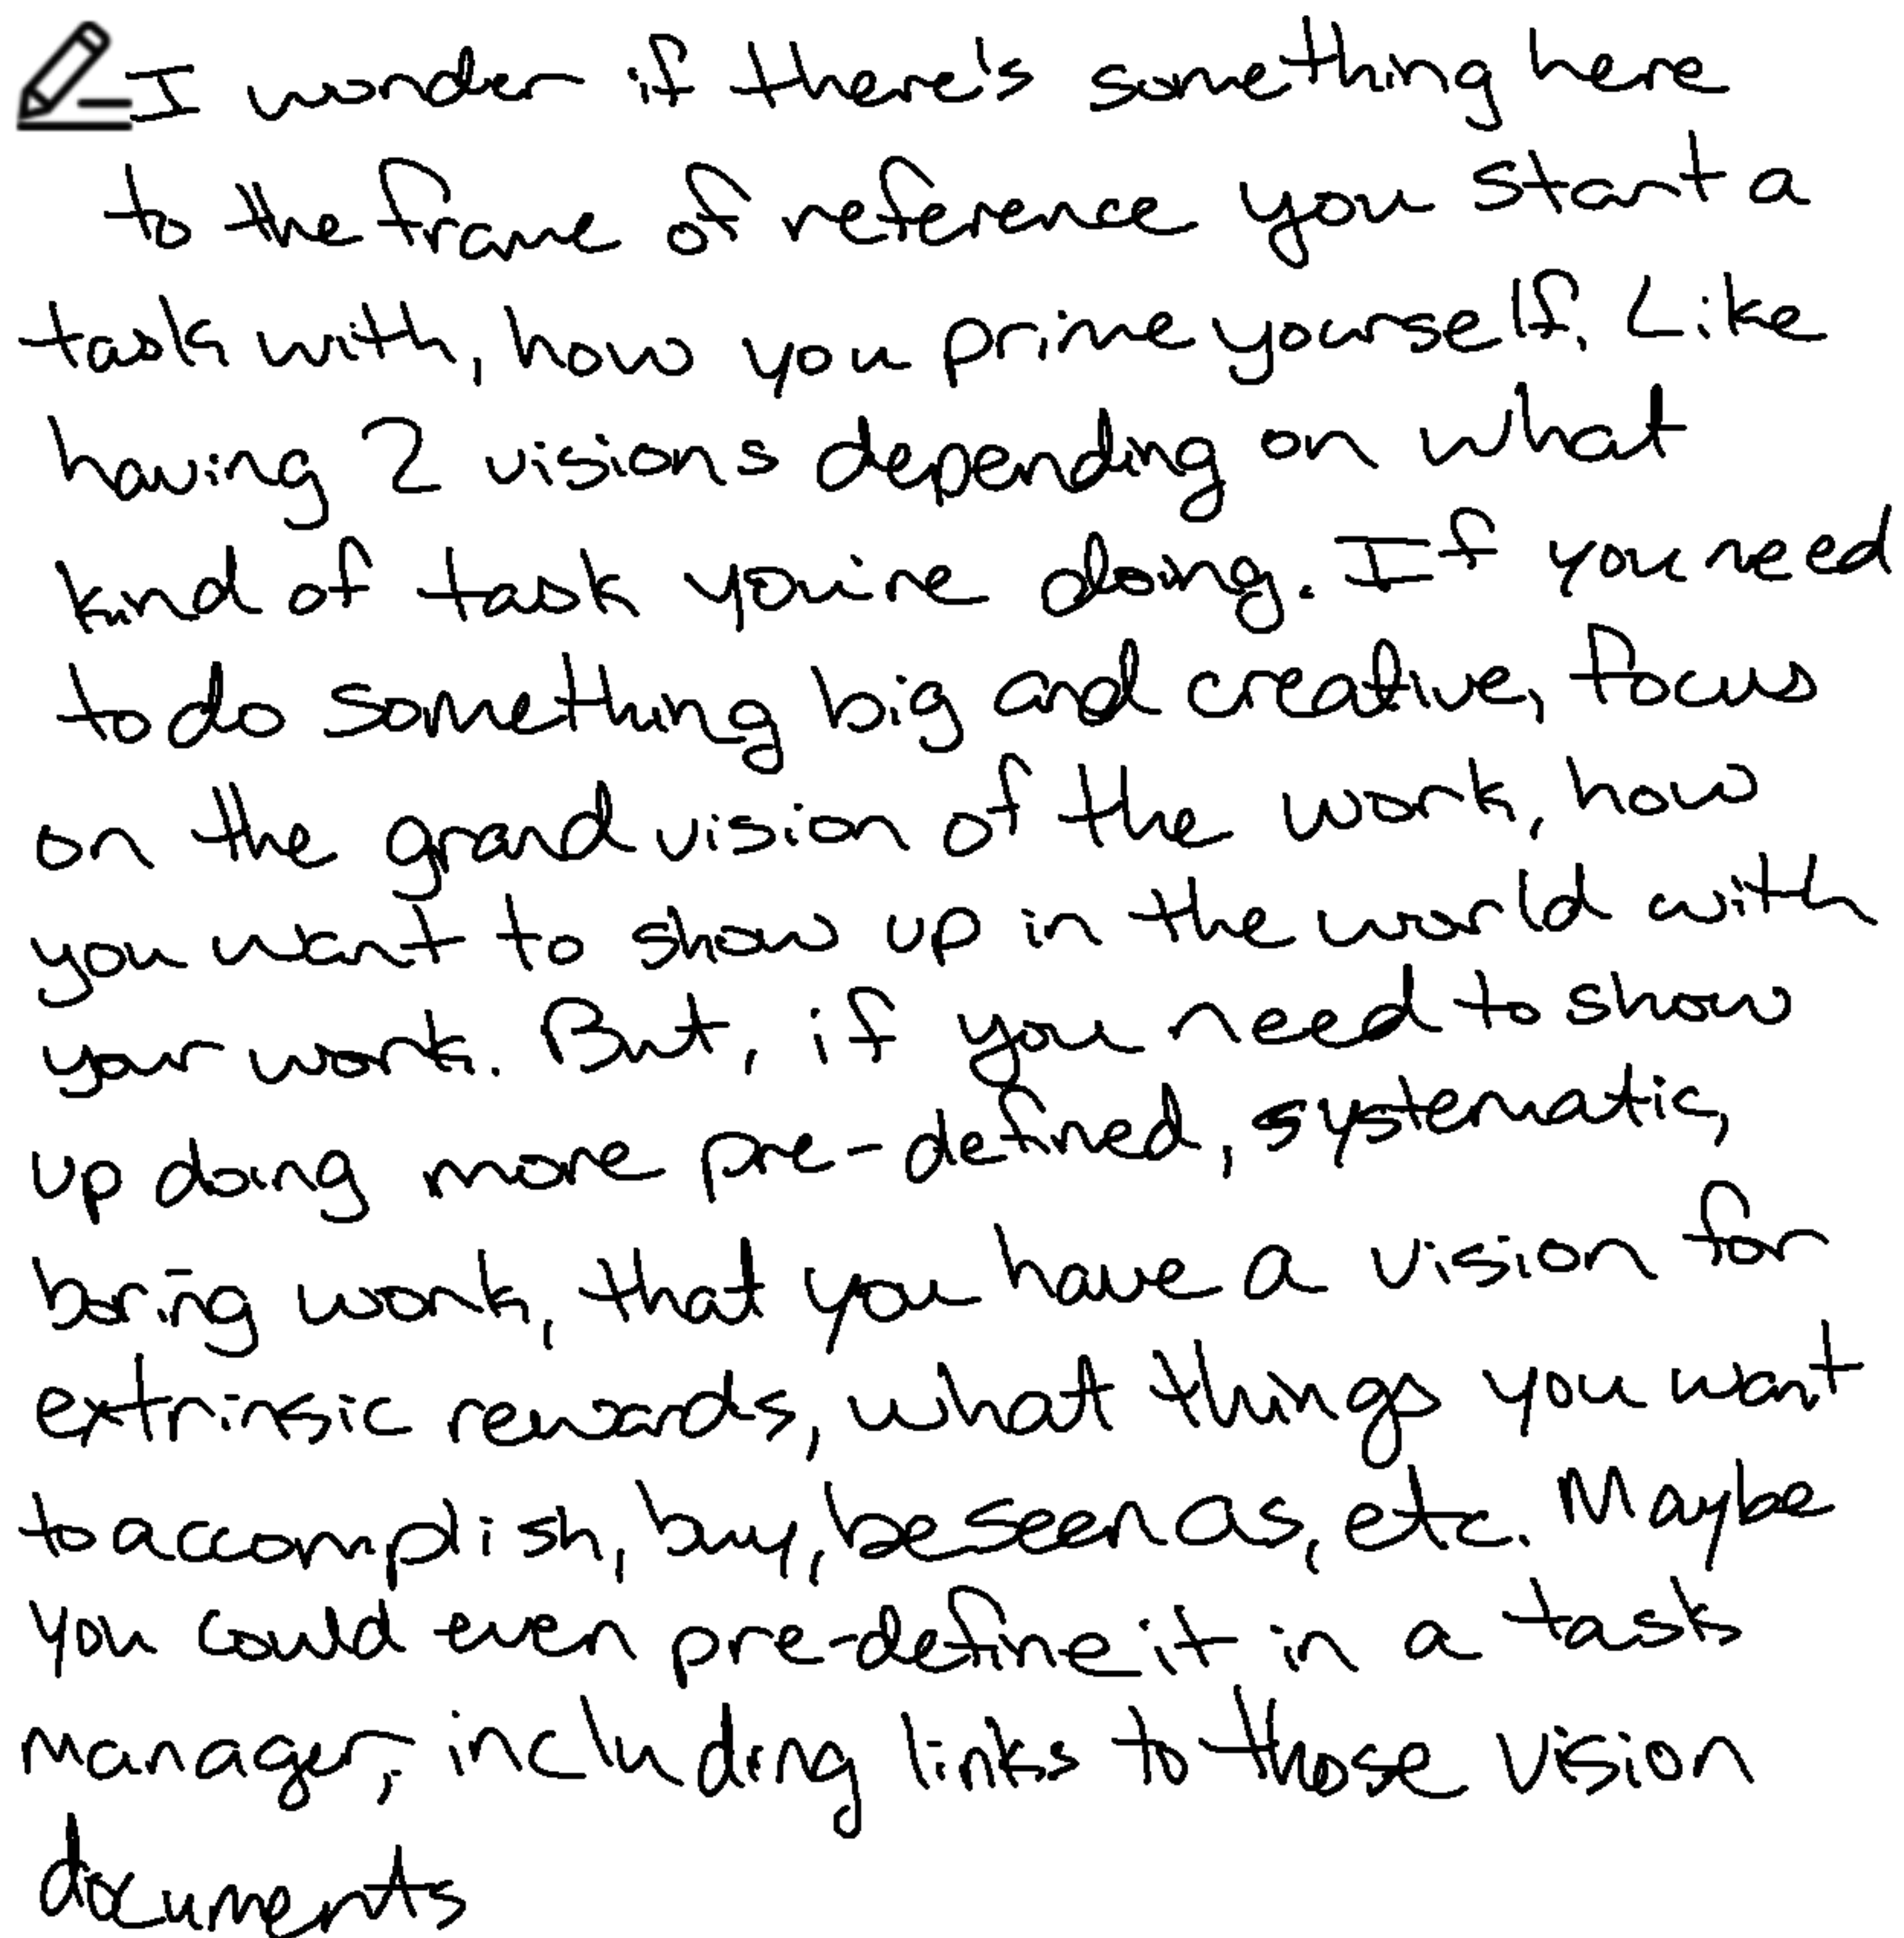 I wonder if there's something here
to the frame of reference you start a
task with, how you prime yourself. Like
having 2 visions depending on what
kind of task you're doing. If you need
to do something big and creative, focus
on the grand vision of the work, how
you want to show up in the world with
your work. But, if you need to show
up doing more pre-defined, systematic,
boring work, that you have a vision for
extrinsic rewards, what things you want
to accomplish, buy, be seen as, etc. Maybe
you could even pre-define it in a task
manager, including links to those vision
documents